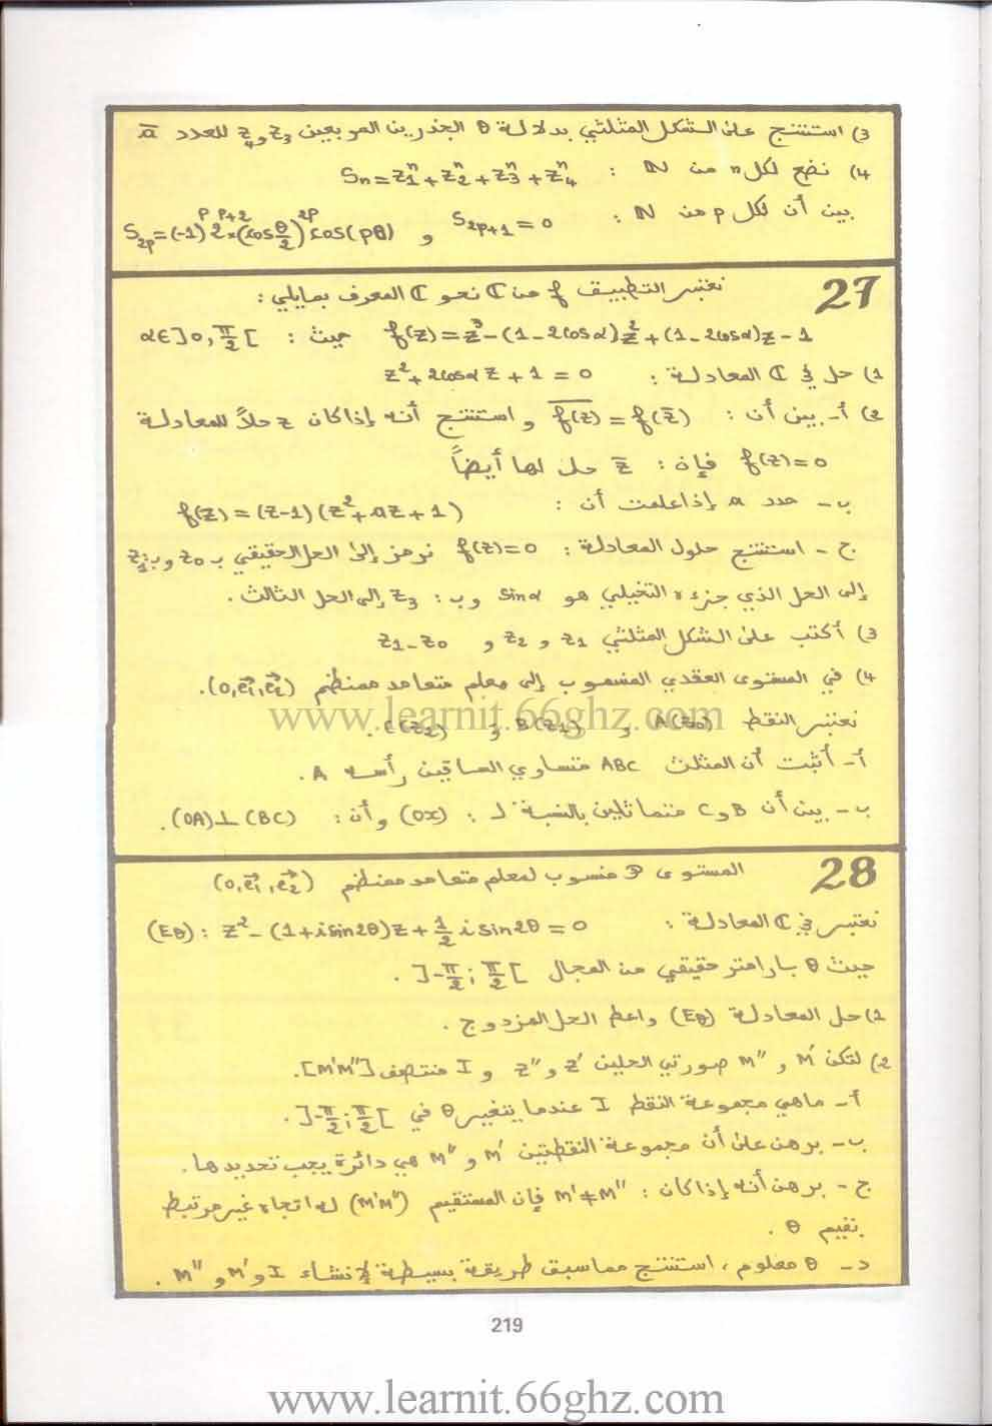 3) استنتج على الشكل المثلثي بدلالة θ الجذرين المربعين z₃ و z₄ للعدد a̅
4) نضع لكل n من ℕ : Sₙ = z₁ⁿ + z₂ⁿ + z₃ⁿ + z₄ⁿ
بين أن لكل p من ℕ : S₂ₚ₊₁ = 0 و S₂ₚ = (-1)ᵖ 2ᵖ⁺² × (cos θ/2)²ᵖ cos(pθ)
27 نعتبر التطبيق f من ℂ نحو ℂ المعرف بمايلي :
f(z) = z³ - (1 - 2cosα)z² + (1 - 2cosα)z - 1 حيث : α∈]0, π/2[
1) حل في ℂ المعادلة : z² + 2cosα z + 1 = 0
2) أ- بين أن : f(z)‾ = f(z̅) و استنتج أنه إذا كان z حلاً للمعادلة
f(z) = 0 فإن : z̅ حل لها أيضاً
ب- حدد a إذا علمت أن : f(z) = (z-1)(z² + az + 1)
ج- استنتج حلول المعادلة : f(z) = 0 نرمز إلى الحل الحقيقي ب z₀ و ب :
إلى الحل الذي جزءه التخيلي هو sinα و ب : z₃ إلى الحل الثالث .
3) أكتب على الشكل المثلثي z₁ و z₂ و z₁ - z₀
4) في المستوى العقدي المنسوب إلى معلم متعامد ممنظم (0, e₁⃗, e₂⃗).
نعتبر النقط A(z₀) و B(z₁) و C(z₂) .
أ- أثبت أن المثلث ABC متساوي الساقين رأسه A .
ب- بين أن B و C متماثلين بالنسبة ل : (Ox) و أن : (OA)⊥(BC) .
28 المستوى 𝒫 منسوب لمعلم متعامد ممنظم (0, e₁⃗, e₂⃗)
نعتبر في ℂ المعادلة : (Eθ) : z² - (1 + i sin2θ)z + 1/2 i sin2θ = 0
حيث θ بارامتر حقيقي من المجال ]-π/2 ; π/2[ .
1) حل المعادلة (Eθ) واعط الحل المزدوج .
2) لتكن M' و M" صورتي الحلين z' و z" و I منتصف [M'M"].
أ- ماهي مجموعة النقط I عندما يتغير θ في ]-π/2 ; π/2[ .
ب- برهن على أن مجموعة النقطتين M' و M" هي دائرة يجب تحديدها .
ج- برهن أنه إذا كان : M' ≠ M" فإن المستقيم (M'M") له اتجاه غير مرتبط
بقيم θ .
د- θ معلوم ، استنتج مماسبق طريقة بسيطة لإنشاء I و M' و M" .
219
www.learnit.66ghz.com
www.learnit.66ghz.com